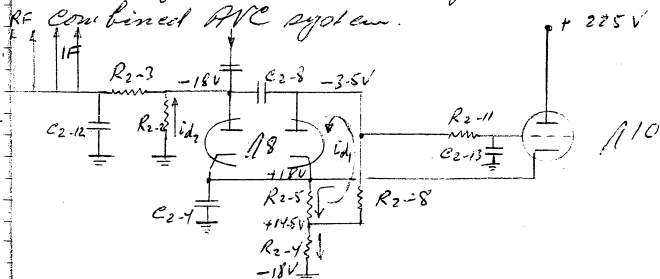 RF Combined AVC system.
+ 225V
IF
R2-3
-18V
C2-8
-3.5V
C2-12
R2-2
id2
Λ8
id1
R2-11
C2-13
Λ10
+18V
C2-4
R2-5
R2-8
+14.5V
R2-4
-18V